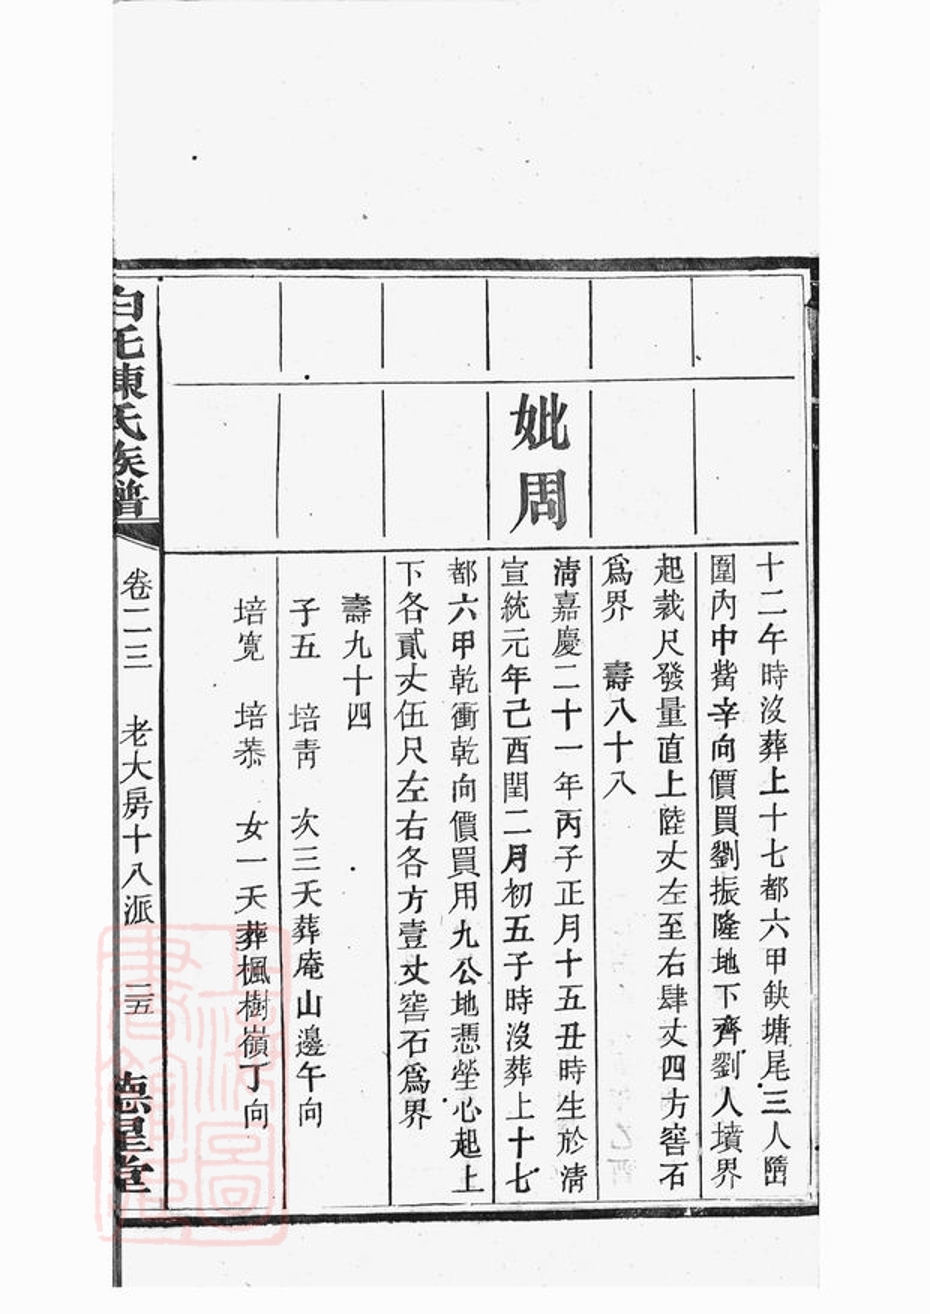 十二午時沒葬上十七都六甲缺塘尾三人
圍內中 辛向價買劉振隆地下齊劉人墳界
起裁尺發量直上陸丈左至右肆丈四方窖石
爲界 壽八十八
妣周
清嘉慶二十一年丙子正月十五丑時生於清
宣統元年己酉閏二月初五子時沒葬上十七
都六甲乾衝乾向價買用九公地憑塋心起上
下各貳丈伍尺左右各方壹丈窖石爲界
壽九十四
子五 培靑 次三夭葬庵山邊午向
培寬 培菾 女一夭葬楓樹嶺丁向
白毛陳氏族譜
卷二三 老大房十八派 二五
德星堂
上海圖書館藏